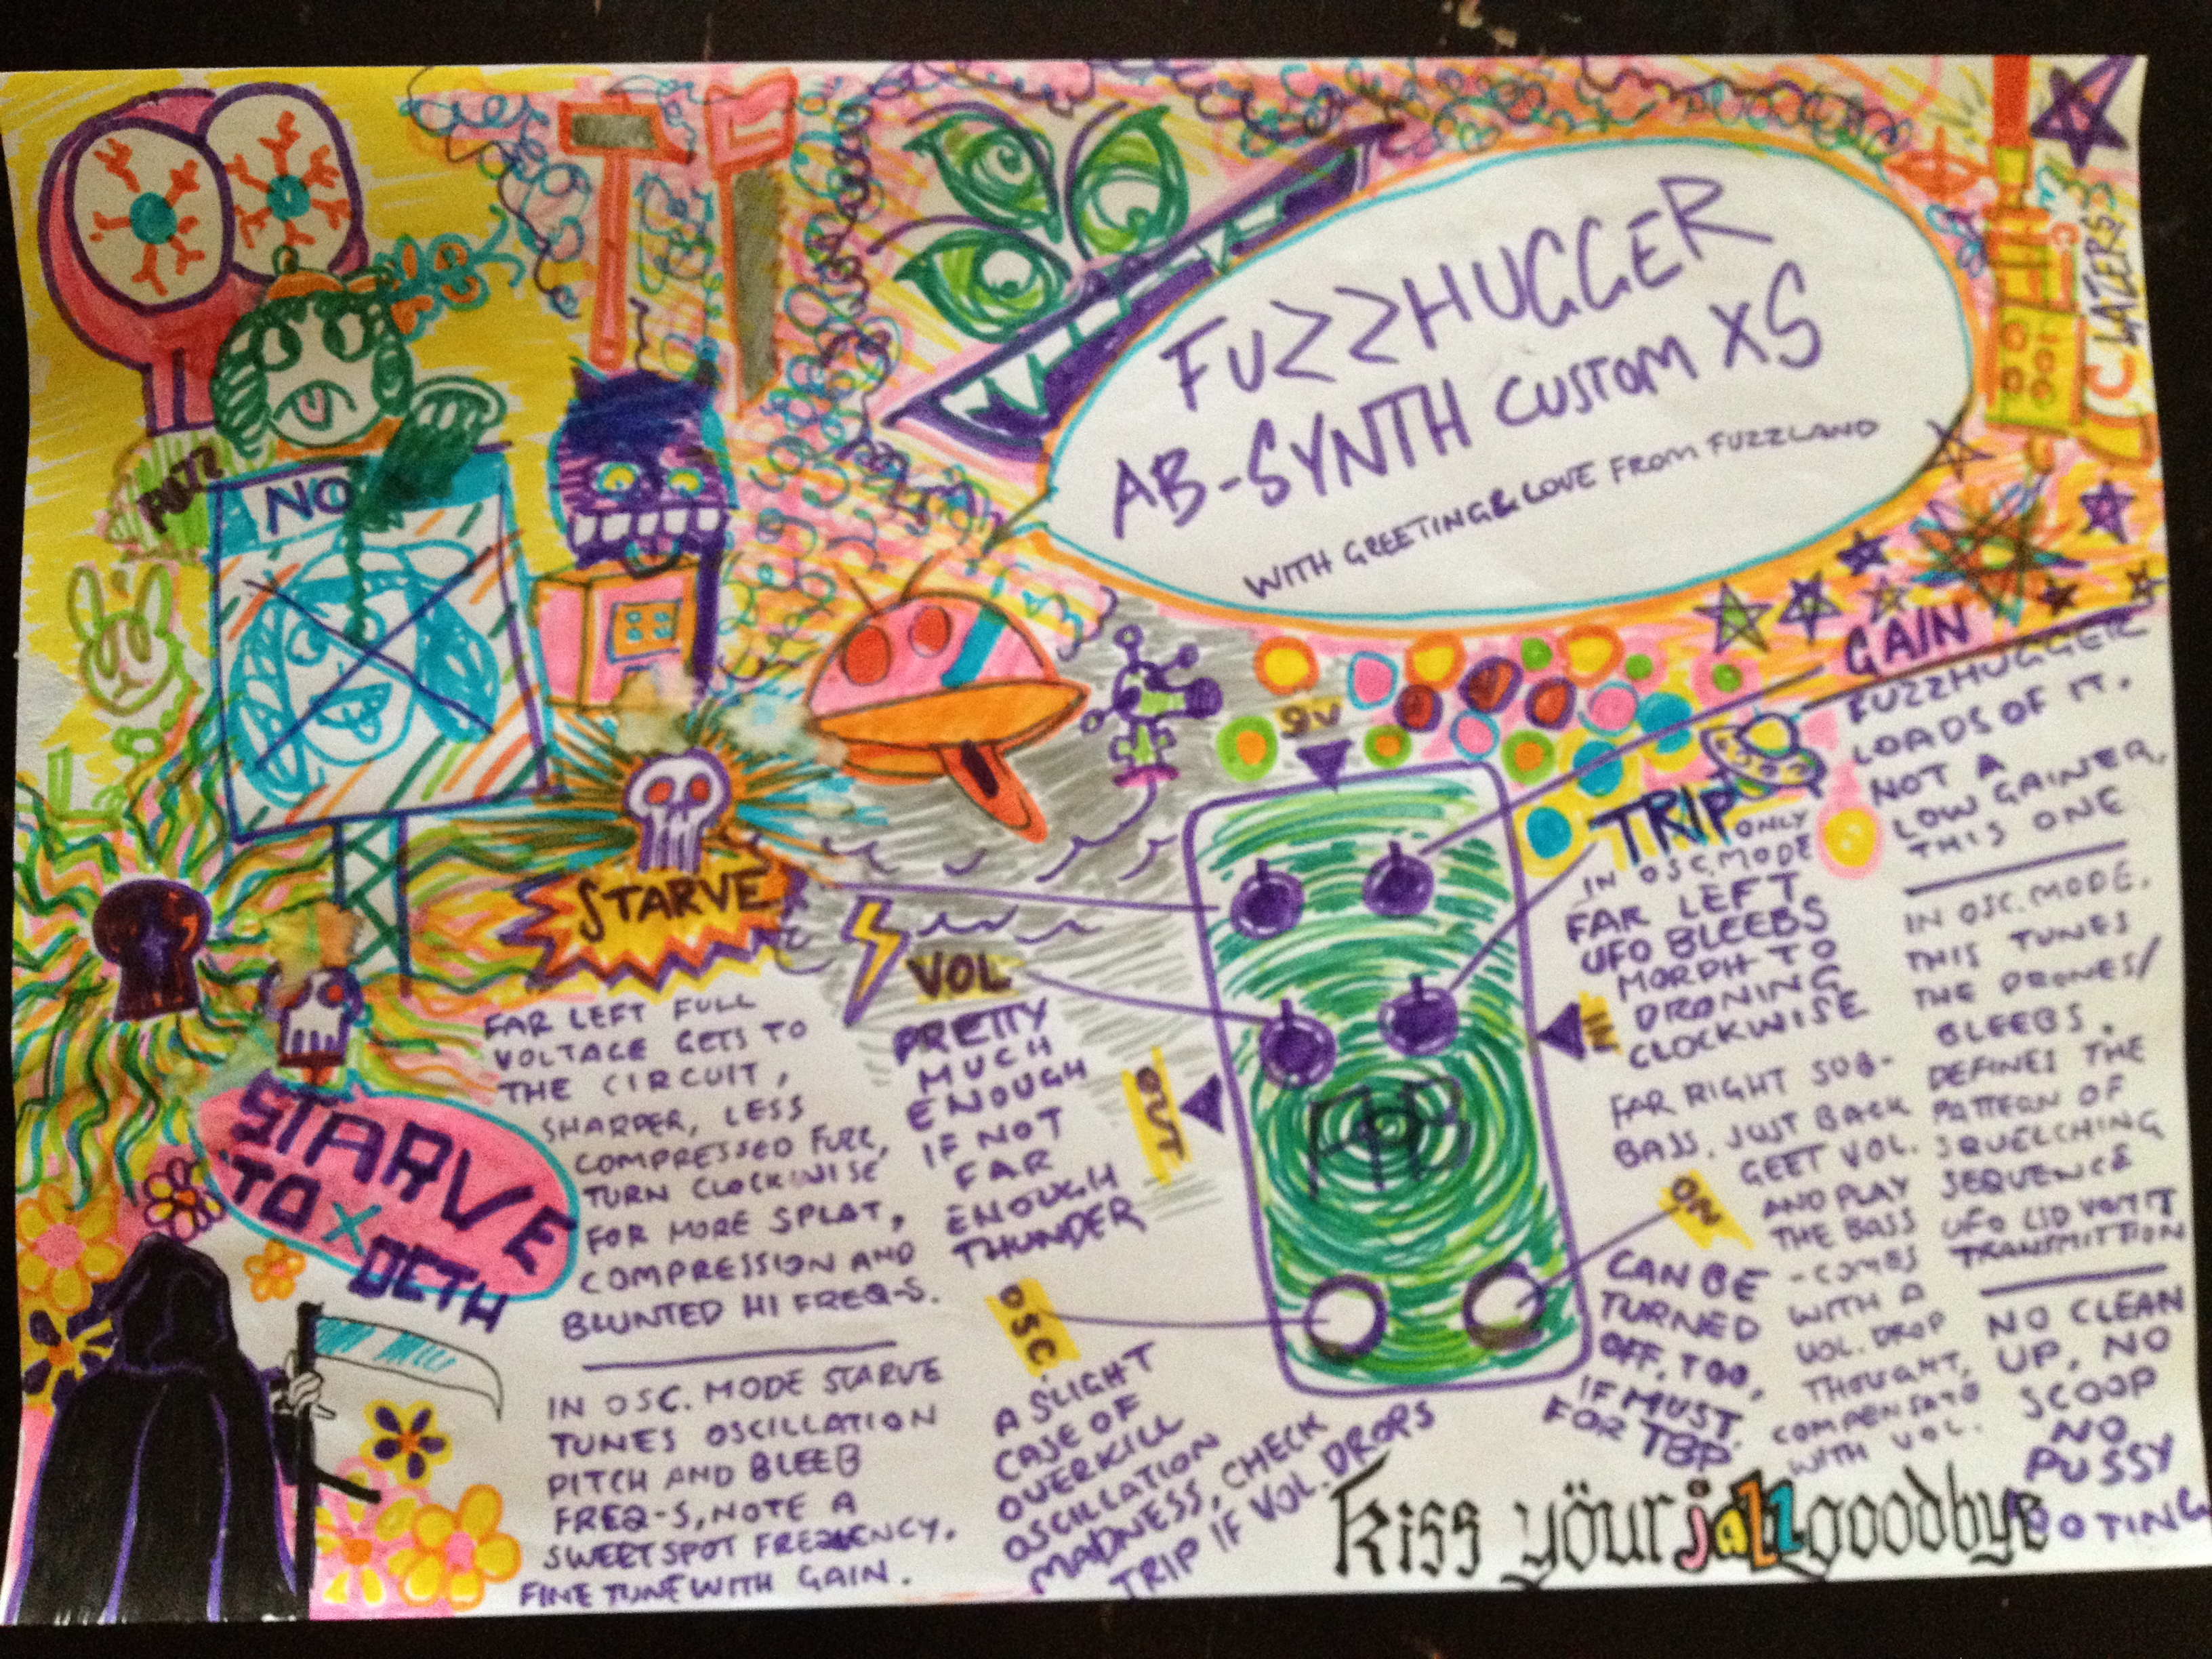 FUZZHUGGER
AB-SYNTH CUSTOM XS
WITH GREETING & LOVE FROM FUZZLAND
LAZERS
NO
STARVE
FAR LEFT FULL
VOLTAGE GETS TO
THE CIRCUIT,
SHARPER, LESS
COMPRESSED FUZZ,
TURN CLOCKWISE
FOR MORE SPLAT,
COMPRESSION AND
BLUNTED HI FREQ-S.
IN OSC. MODE STARVE
TUNES OSCILLATION
PITCH AND BLEEB
FREQ-S, NOTE A
SWEETSPOT FREQUENCY.
FINE TUNE WITH GAIN.
STARVE
TO X
DETH
VOL
PRETTY
MUCH
ENOUGH
IF NOT
FAR
ENOUGH
THUNDER
OSC.
A SLIGHT
CASE OF
OVERKILL
OSCILLATION
MADNESS, CHECK
TRIP IF VOL. DROPS
9V
OUT
IN
TRIP
ONLY
IN OSC. MODE
FAR LEFT
UFO BLEEBS
MORPH TO
DRONING
CLOCKWISE
FAR RIGHT SUB-
BASS. JUST BACK
GEET VOL.
AND PLAY
THE BASS
-COMES
WITH A
VOL. DROP
THOUGHT,
COMPENSATE
WITH VOL.
ON
CAN BE
TURNED
OFF, TOO,
IF MUST.
FOR TBP
GAIN
FUZZHUGGER
LOADS OF IT.
NOT A
LOW GAINER,
THIS ONE
IN OSC. MODE,
THIS TUNES
THE DRONES/
BLEEBS.
DEFINES THE
PATTERN OF
SQUELCHING
SEQUENCE
UFO LID VOMIT
TRANSMITTION
NO CLEAN
UP, NO
SCOOP
NO
PUSSY
FOOTING
Kiss yöur jazz goodbye